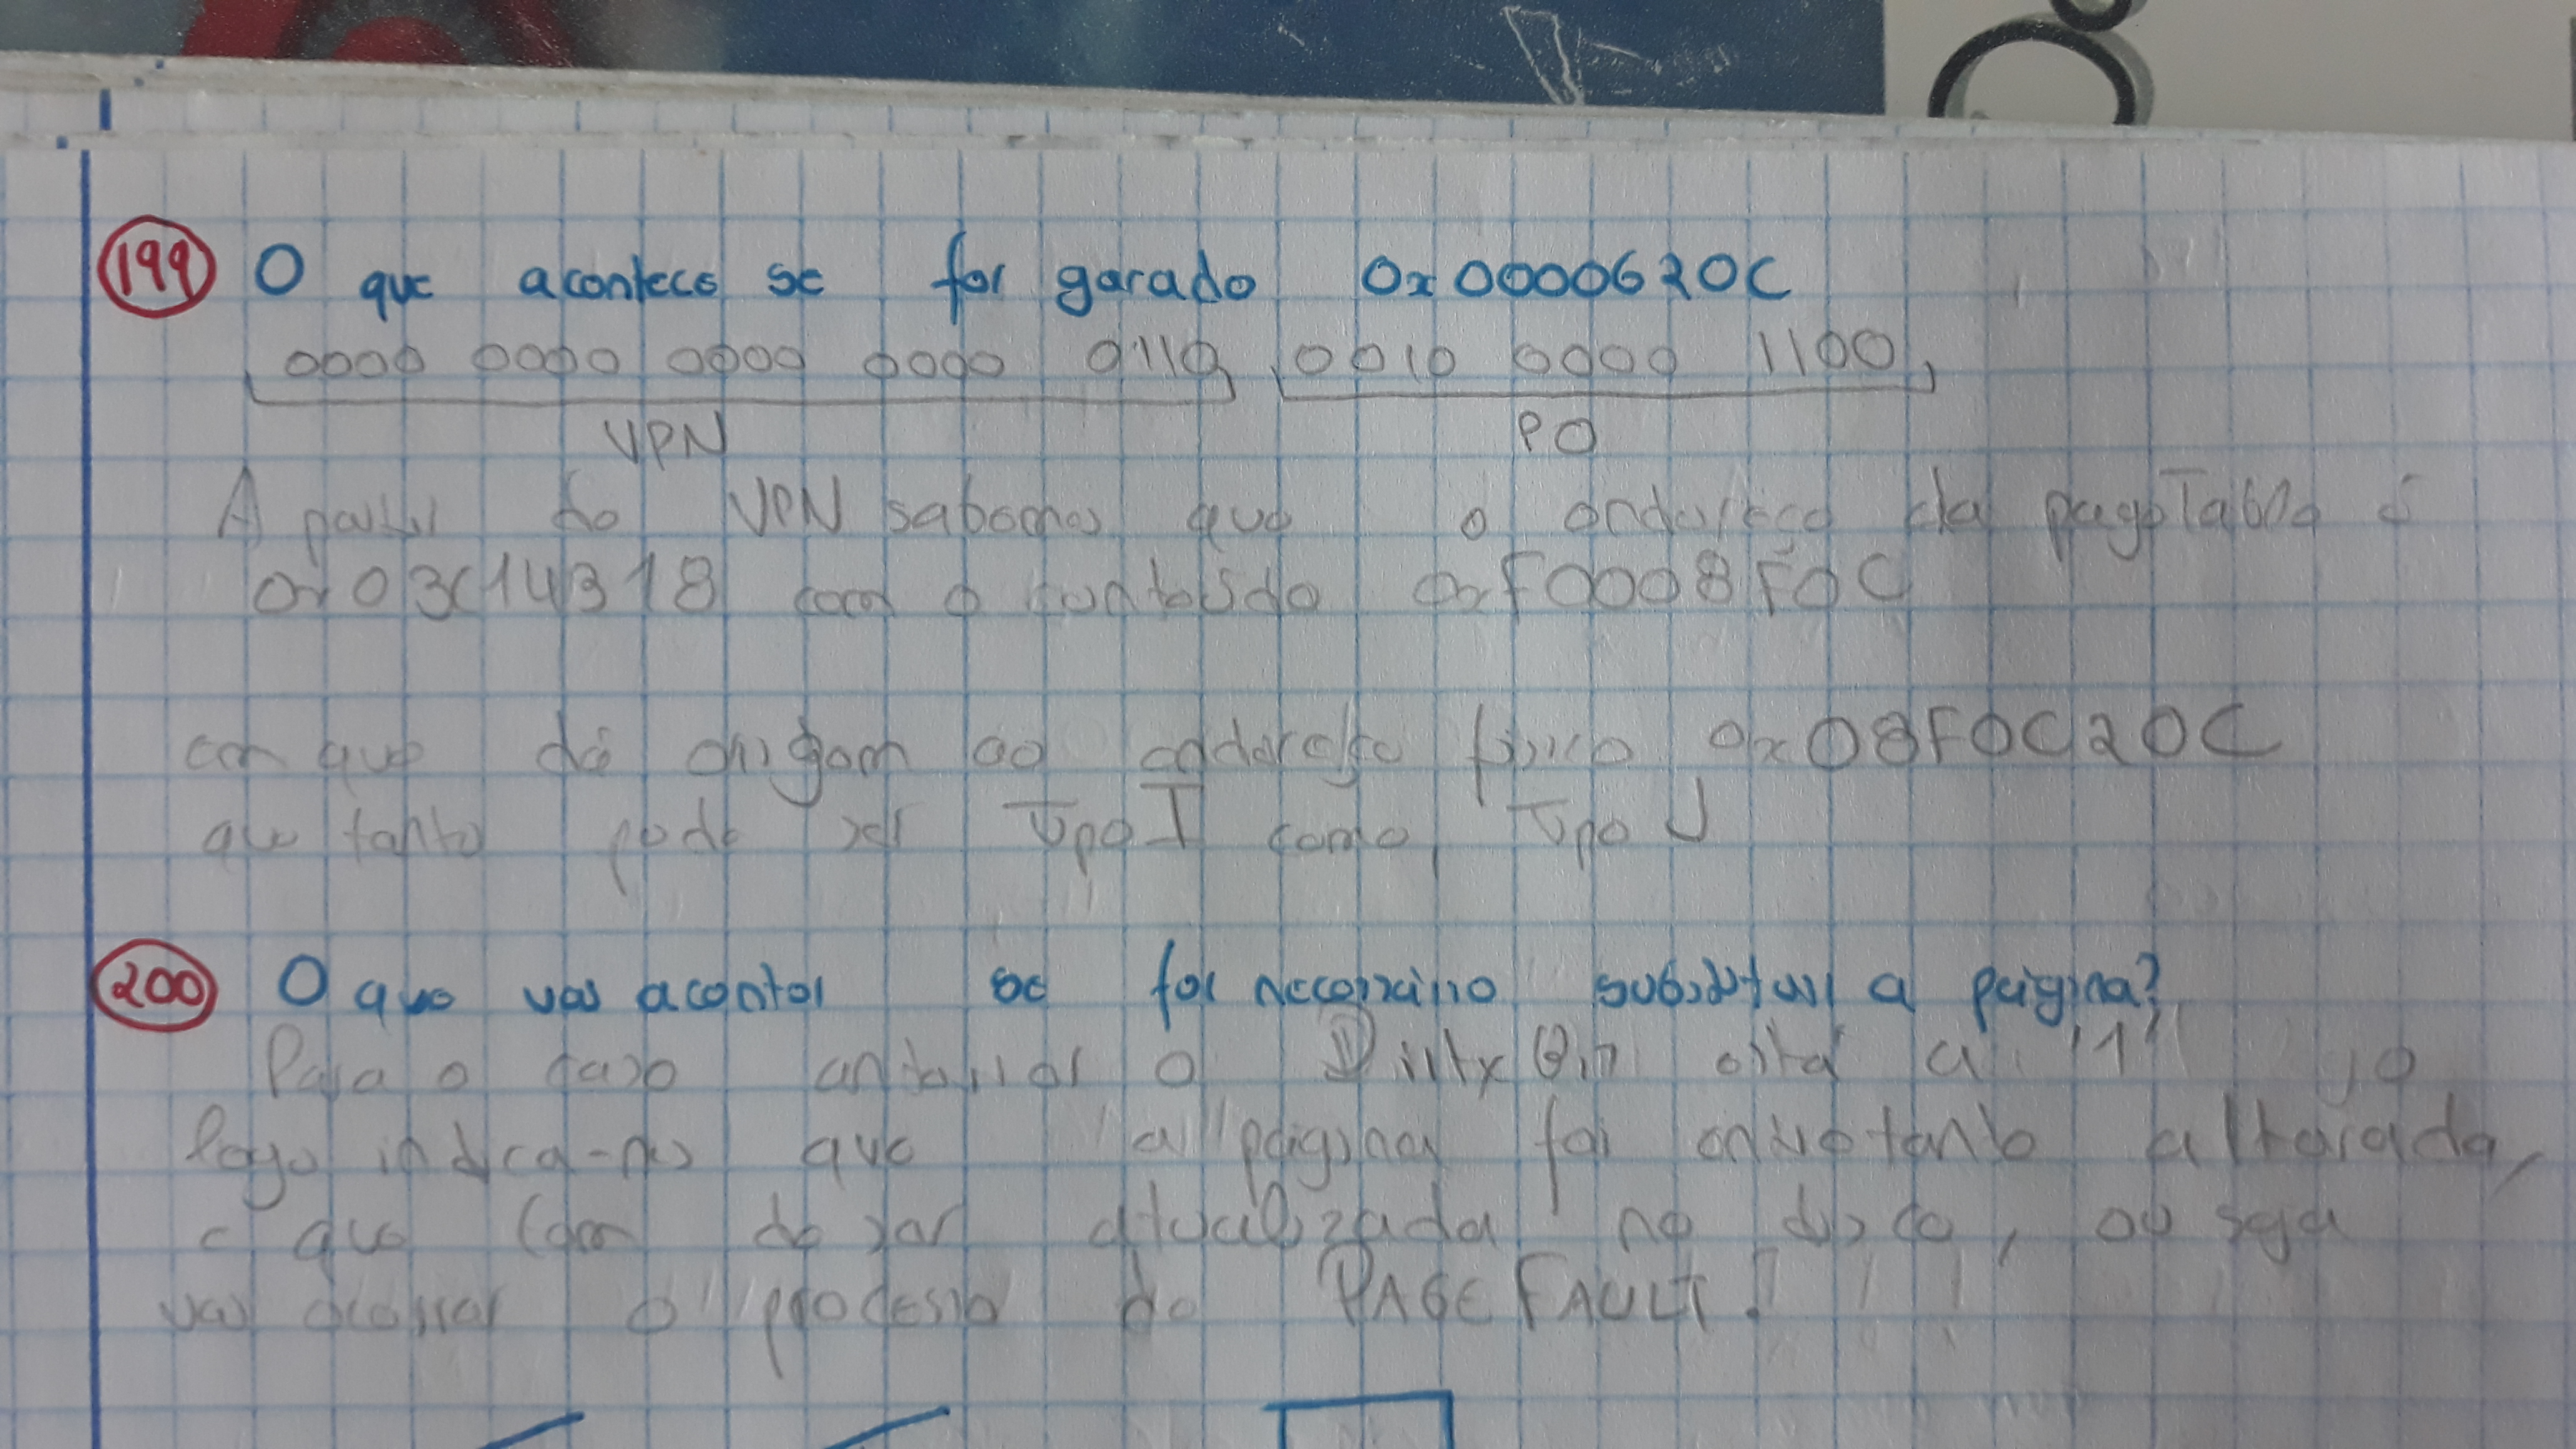 199 O que acontece se for gerado 0x0000620C
0000 0000 0000 0000 0110 0010 0000 1100
VPN PO
A partir do VPN sabemos que o endereço da pageTable é
0x03C14318 com o conteúdo 0xF0008F0C
com que dê origem ao endereço físico 0x08F0C20C
que tanto pode ser Tipo I como, Tipo J
200 O que vai acontecer se for necessário substituir a página?
Para o caso anterior o Dirty Bit está a "1"
logo indica-nos que "a" página foi entretanto alterada,
e que tem de ser atualizada no disco, ou seja
vai ocorrer o processo de PAGE FAULT.